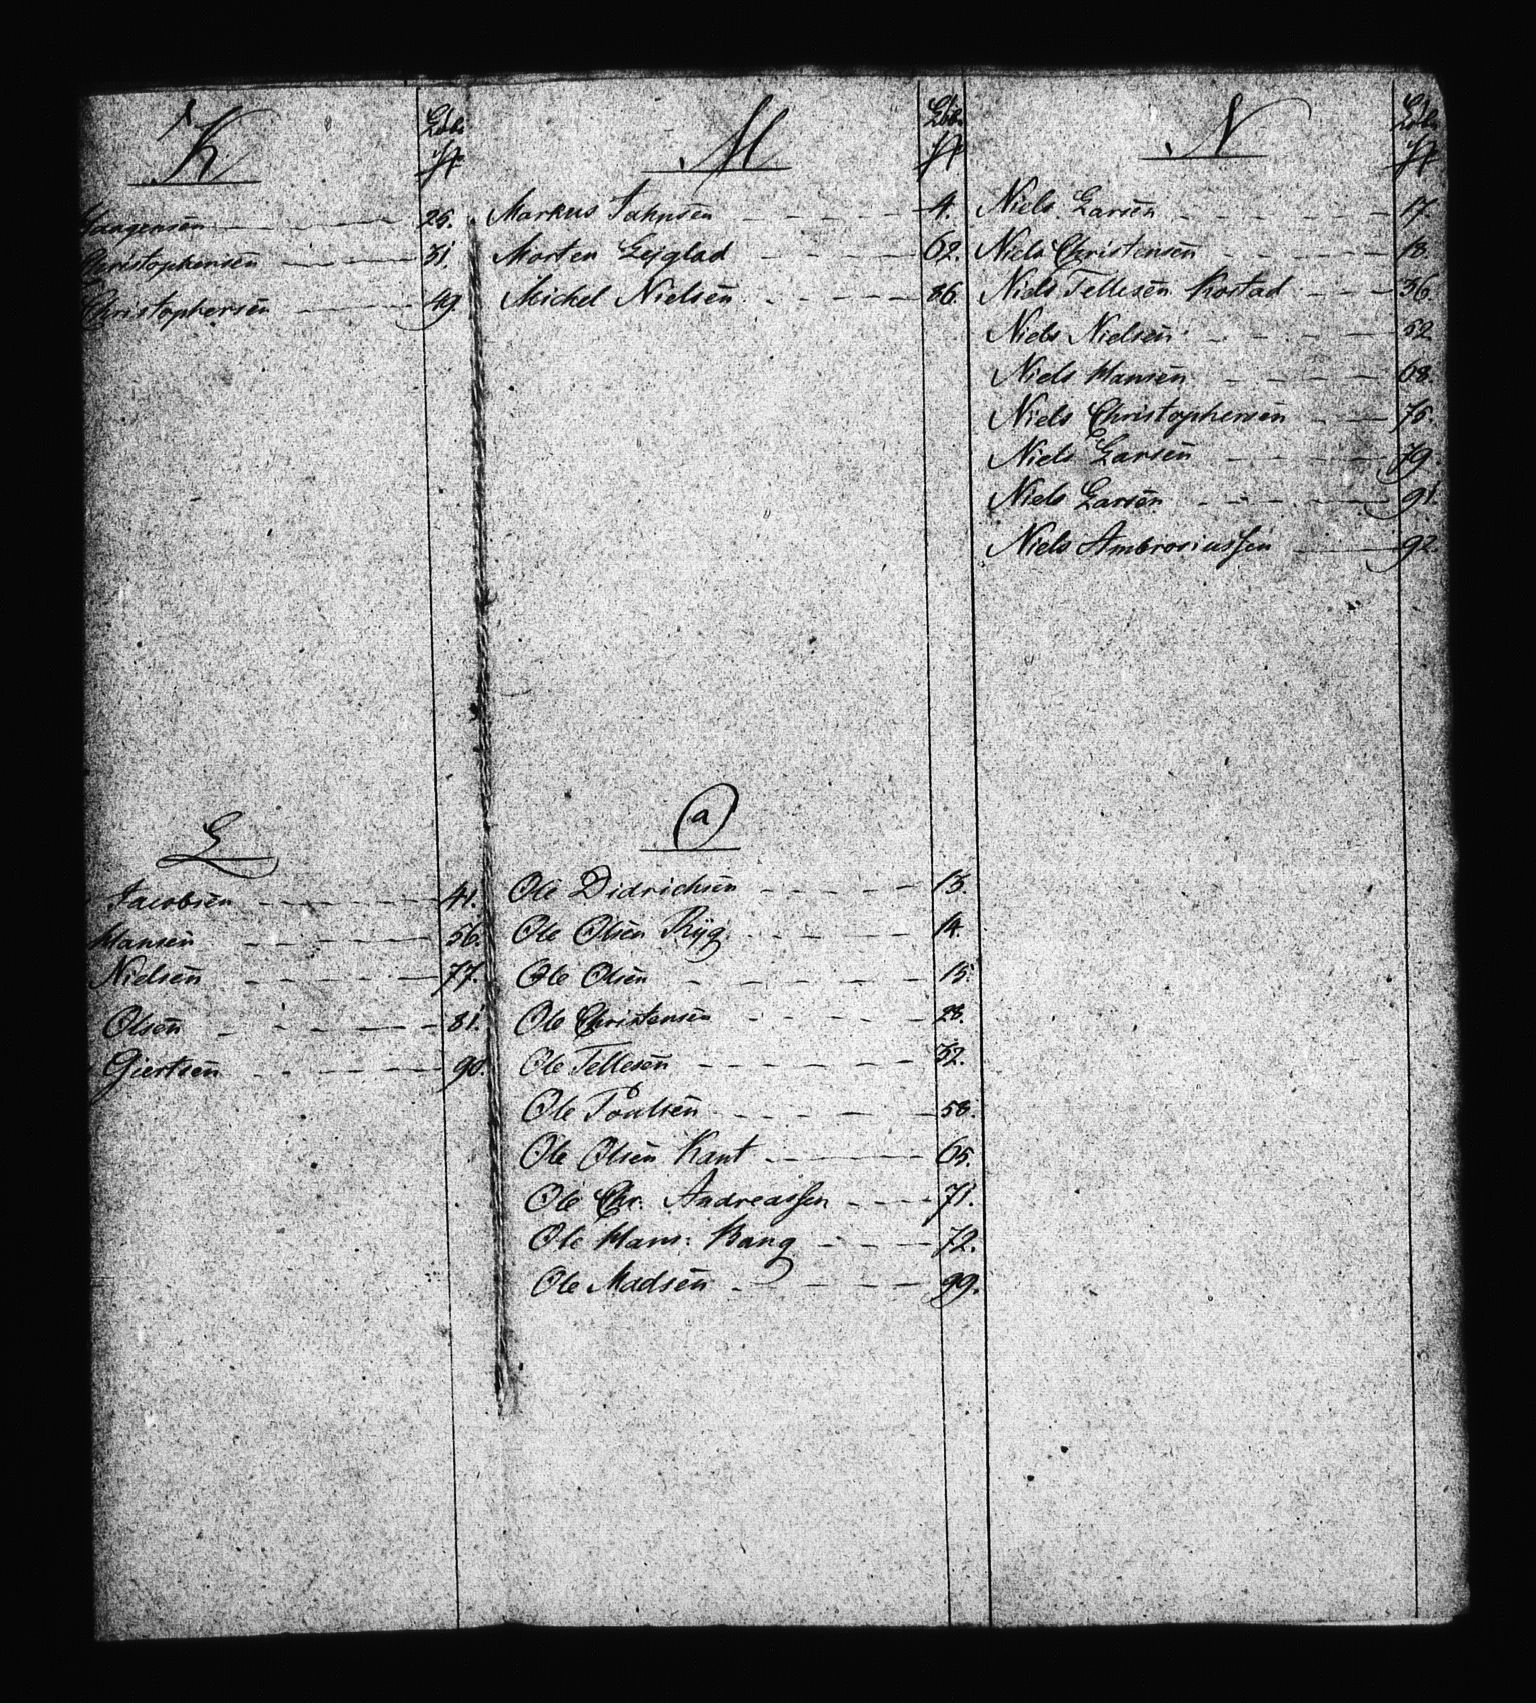 K
Christophersen 31.
Christophersen 49.
L
Jacobsen 41.
Hansen 56.
Nielsen 77.
Olsen 81.
Giertsen 90.
M
Markus Jahnsen 4.
Morten Leiglad 62.
Michel Nielsen 86.
O
Ole Didrichsen 13.
Ole Olsen Ryg 14.
Ole Olsen 15.
Ole Christensen 28.
Ole Tellesen 32.
Ole Poulsen 58.
Ole Olsen Kant 65.
Ole Chr. Andreassen 71.
Ole Hans: Bang 72.
Ole Madsen 99.
N
Niels Larsen 17.
Niels Christensen 18.
Niels Tellesen Kostad 36.
Niels Nielsen 52.
Niels Hansen 68.
Niels Christophersen 75.
Niels Larsen 79.
Niels Larsen 91.
Niels Ambrosiussen 92.